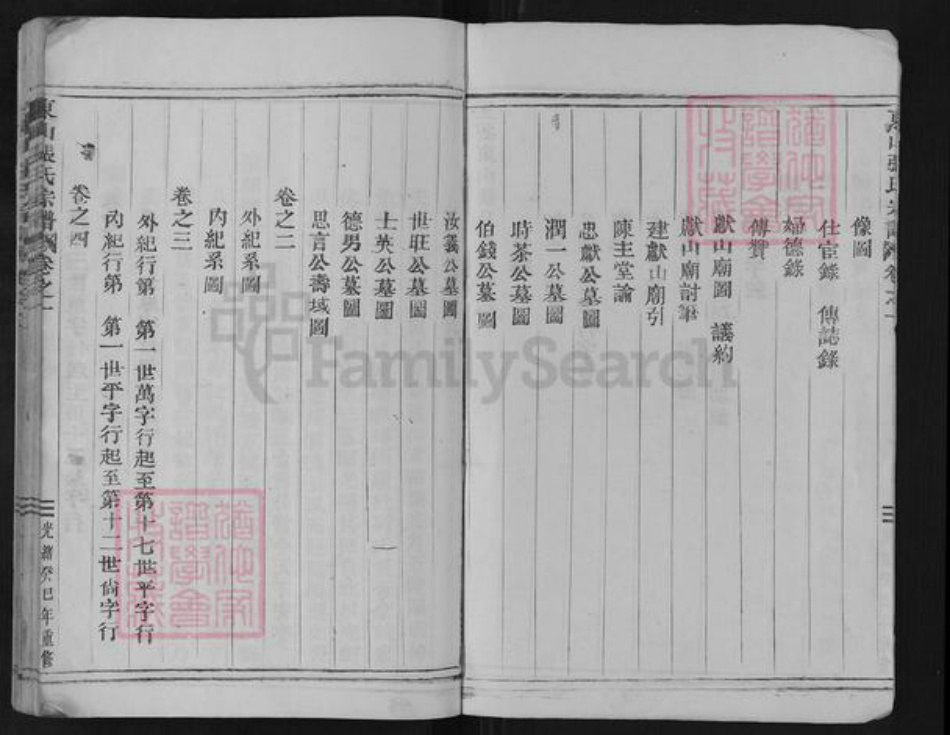 像圖
仕宦錄 傳誌錄
婦德錄
傳贊
獻山廟圖 議約
獻山廟討筆
建獻山廟引
陳主堂論
忠獻公墓圖
潤一公墓圖
時茶公墓圖
伯錢公墓圖
汝義公墓圖
世旺公墓圖
士英公墓圖
德男公墓圖
思言公壽域圖
卷之二
外紀系圖
內紀系圖
卷之三
外紀行第 第一世萬字行起至第十七世平字行
內紀行第 第一世平字行起至第十二世尚字行
卷之四
東山張氏宗譜 卷之一
光緒癸巳年重修
FamilySearch